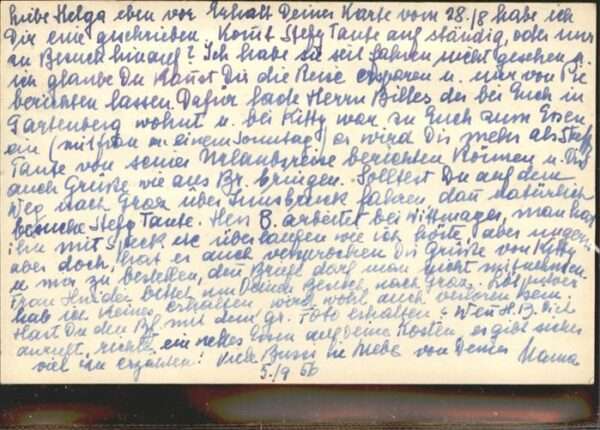 Liebe Helga eben vor Erhalt Deiner Karte vom 28./8 habe ich
Dir eine geschrieben. Komt Steffy Tante auf ständig, oder nur
zu Besuch hinauf? Ich habe sie seit Jahren nicht gesehen
ich glaube Du kanst Dir die Reise ersparen u. nur von
berichten lassen. Dafür lade Herrn Billes der bei Euch in
Gartenberg wohnt u. bei Kitty war zu Euch zum Essen
ein (mit Frau an einem Sonntag) er wird Dir mehr als Steffy
Tante von seiner Urlaubsreise berichten können u. Dir
auch Grüße wie aus Br. bringen. Solltest Du auf dem
Weg nach Graz über Innsbruck fahren, dan natürlich
besuche Steffy Tante. Herr B. arbeitet bei Wittmayer, man hat
ihn mit Speck etc überlaufen wie ich hörte, aber ungern
aber doch, hat er auch versprochen Dir Grüße von Kitty
u mir zu bestellen, den Briefe darf man nicht mitnehmen.
Frau bittet um Deinen Besuch nach Graz.
hab ich keines erhalten wird wohl auch verloren sein.
Hast Du den Bf mit dem gr. Foto erhalten? Wen H. B. Dich
anruft, richte ein nettes Essen auf Deine Kosten, es gibt sicher
viel zu erzählen! Viele Bussi in Liebe von Deiner Mama
5./9 66